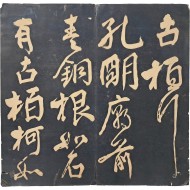 古柏行
孔明廟前
青銅根如石
有古柏柯如